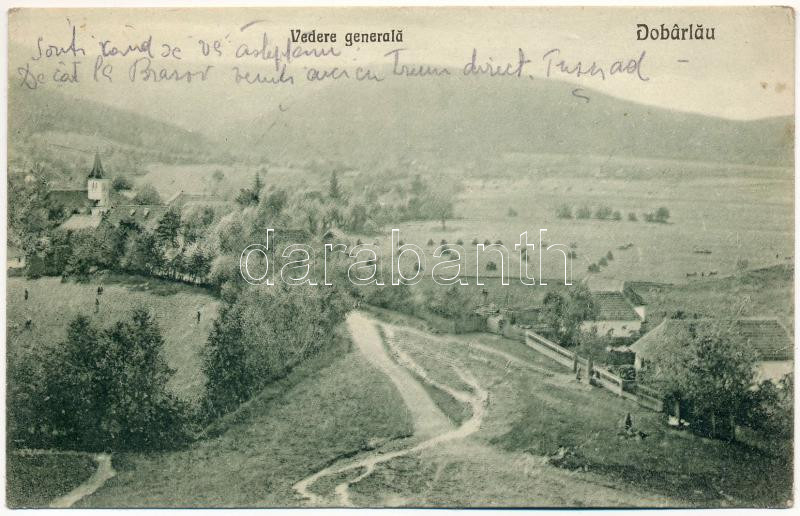 Vedere generală
Dobârlău
vă așteptăm
De cât la Brasov veniti aici cu Tren direct. Tusnad
darabanth